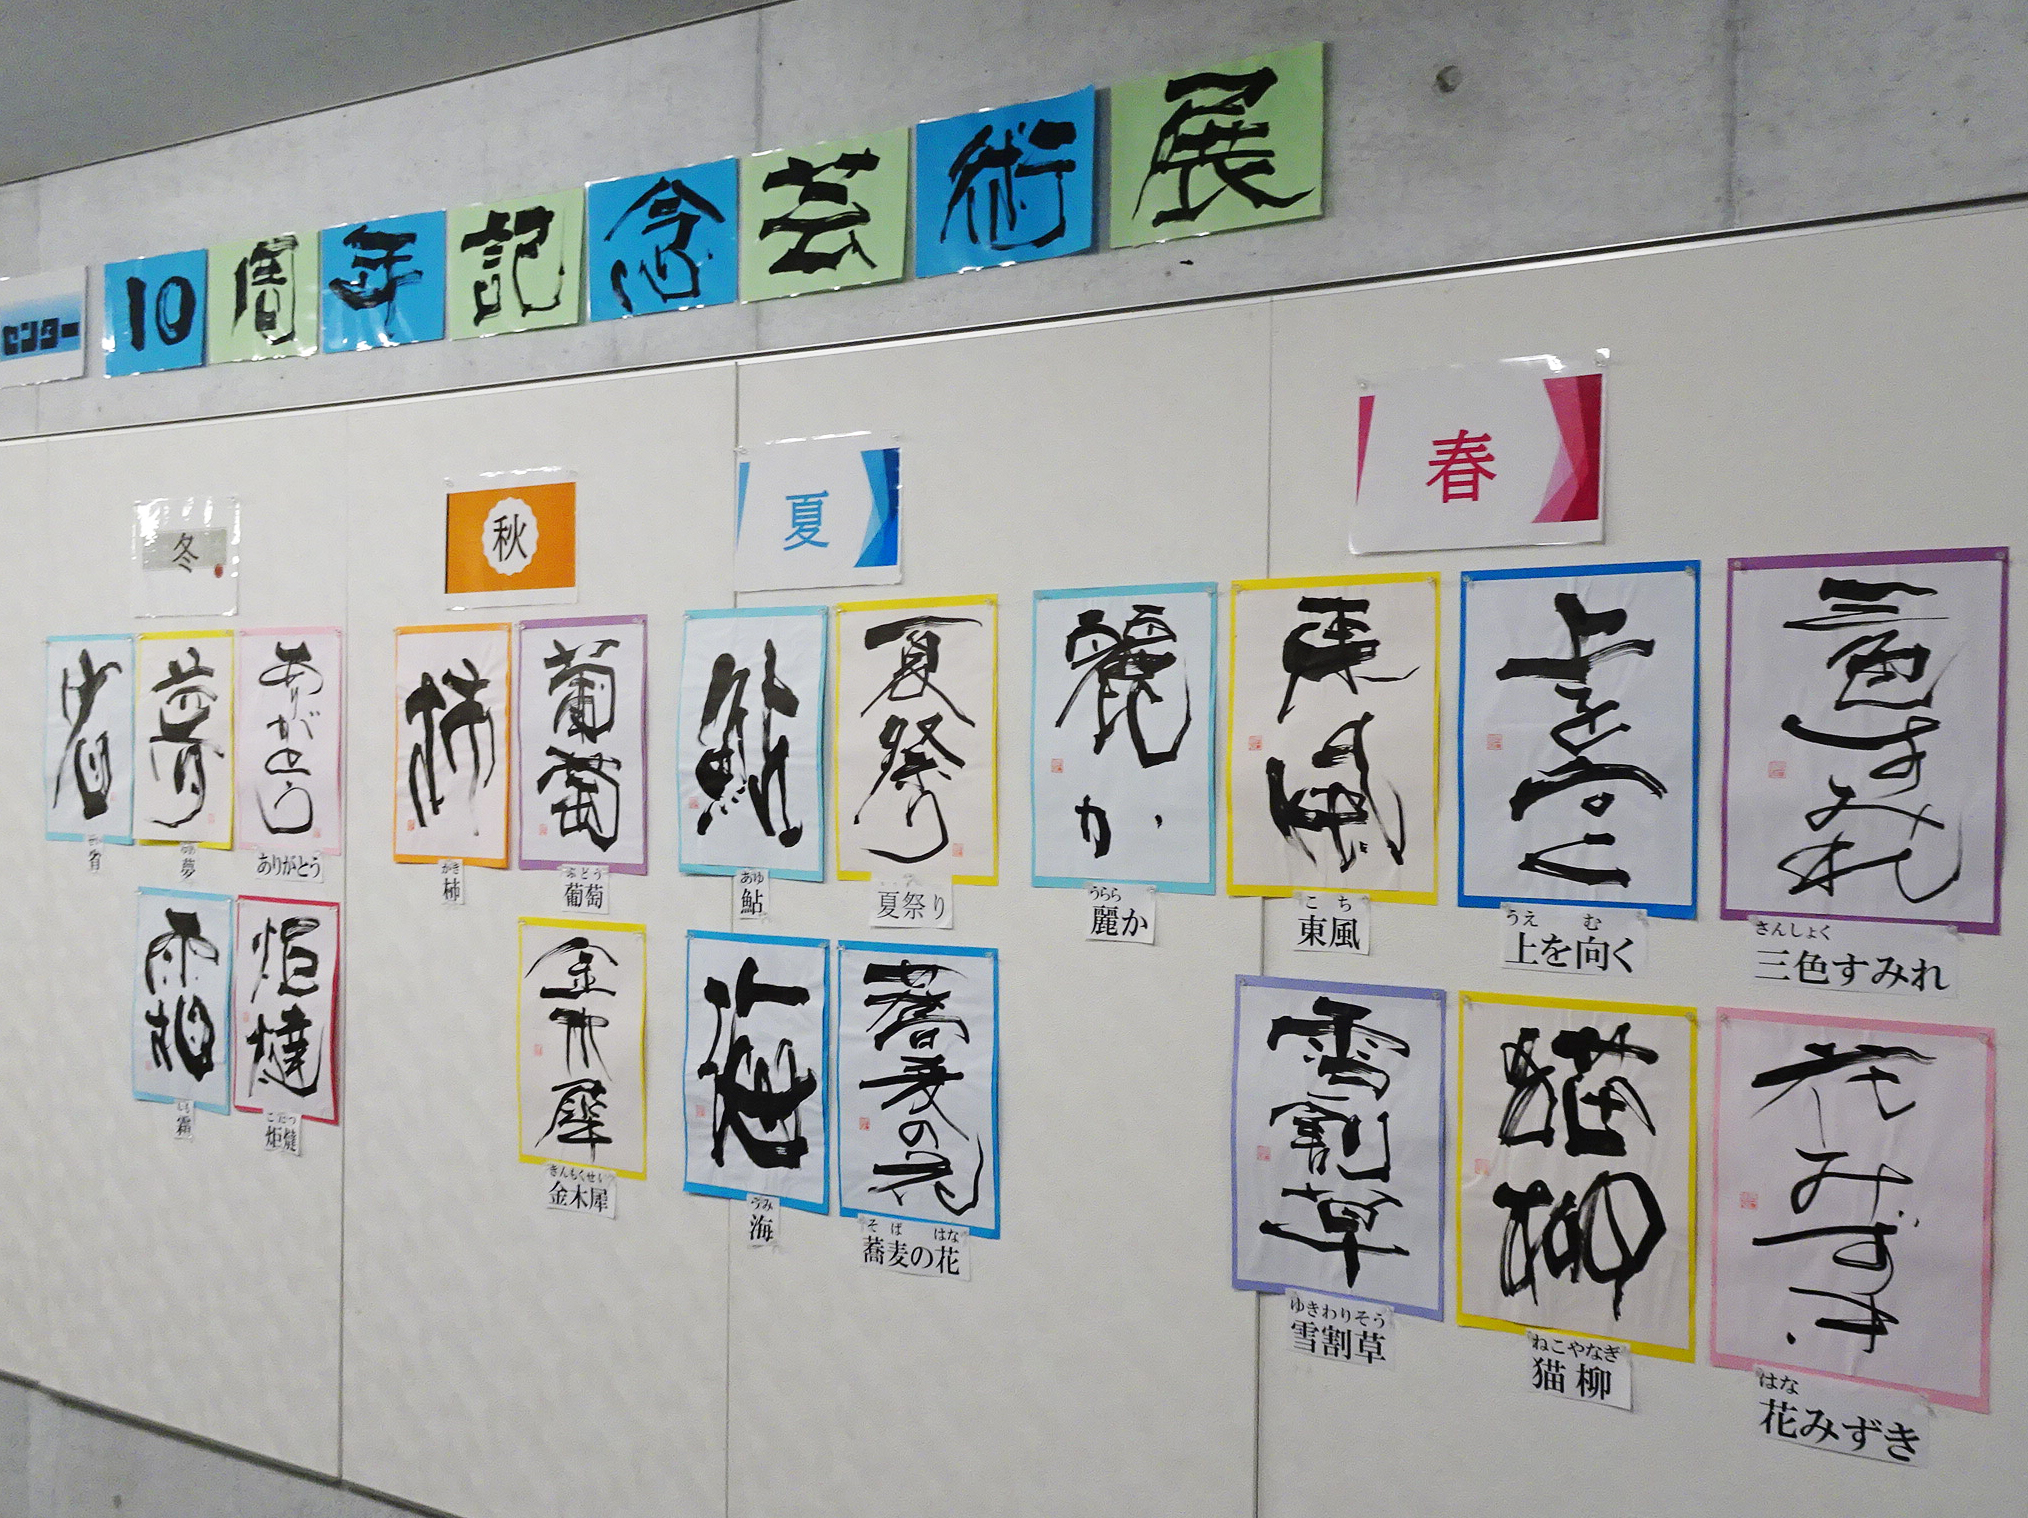 センター 10周年記念芸術展
春
三色すみれ
さんしょく
三色すみれ
上を向く
うえ む
上を向く
東風
こち
東風
麗か
うらら
麗か
花みずき
はな
花みずき
猫柳
ねこやなぎ
猫柳
雪割草
ゆきわりそう
雪割草
夏
夏祭り
夏祭り
鮎
あゆ
鮎
蕎麦の花
そば はな
蕎麦の花
海
うみ
海
秋
葡萄
ぶどう
葡萄
柿
かき
柿
金木犀
きんもくせい
金木犀
冬
ありがとう
ありがとう
夢
夢
省
省
炬燵
こたつ
炬燵
霜
しも
霜